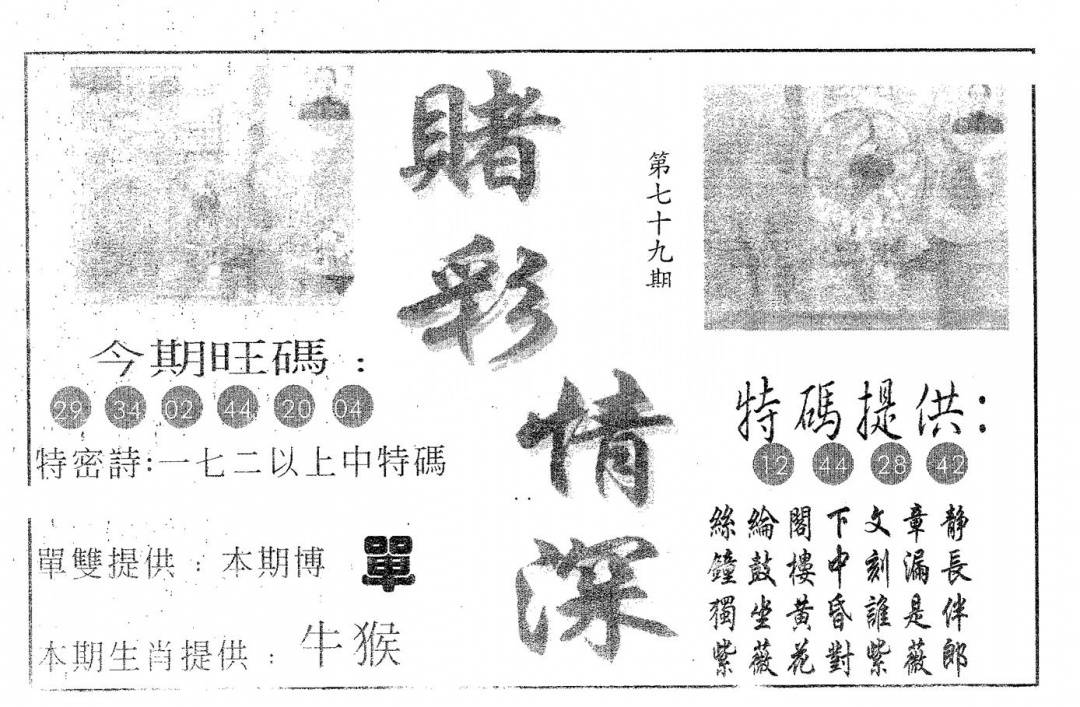 賭彩情深
第七十九期
今期旺碼：
29 34 02 44 20 04
特密詩:一七二以上中特碼
單雙提供：本期博 單
本期生肖提供：牛猴
特碼提供:
12 44 28 42
絲綸閣下文章静
鐘鼓樓中刻漏長
獨坐黃昏誰是伴
紫薇花對紫薇郎